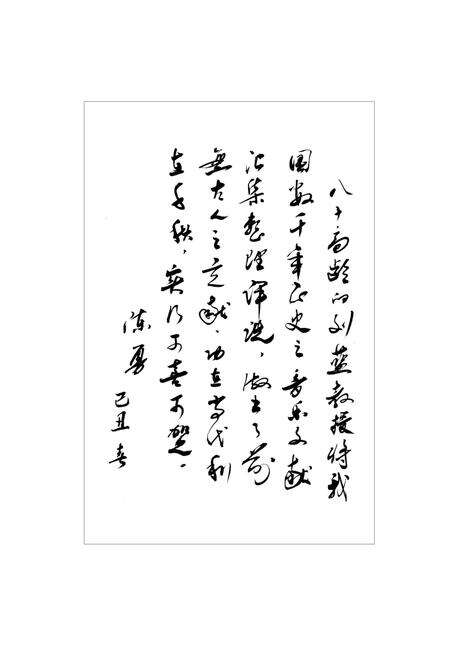 八十高龄的刘蓝教授将我
国数千年正史之音乐文献
汇集整理，做出了前
無古人之贡献，功在当代利
在千秋，实乃可喜可贺。
陈勇
己丑春